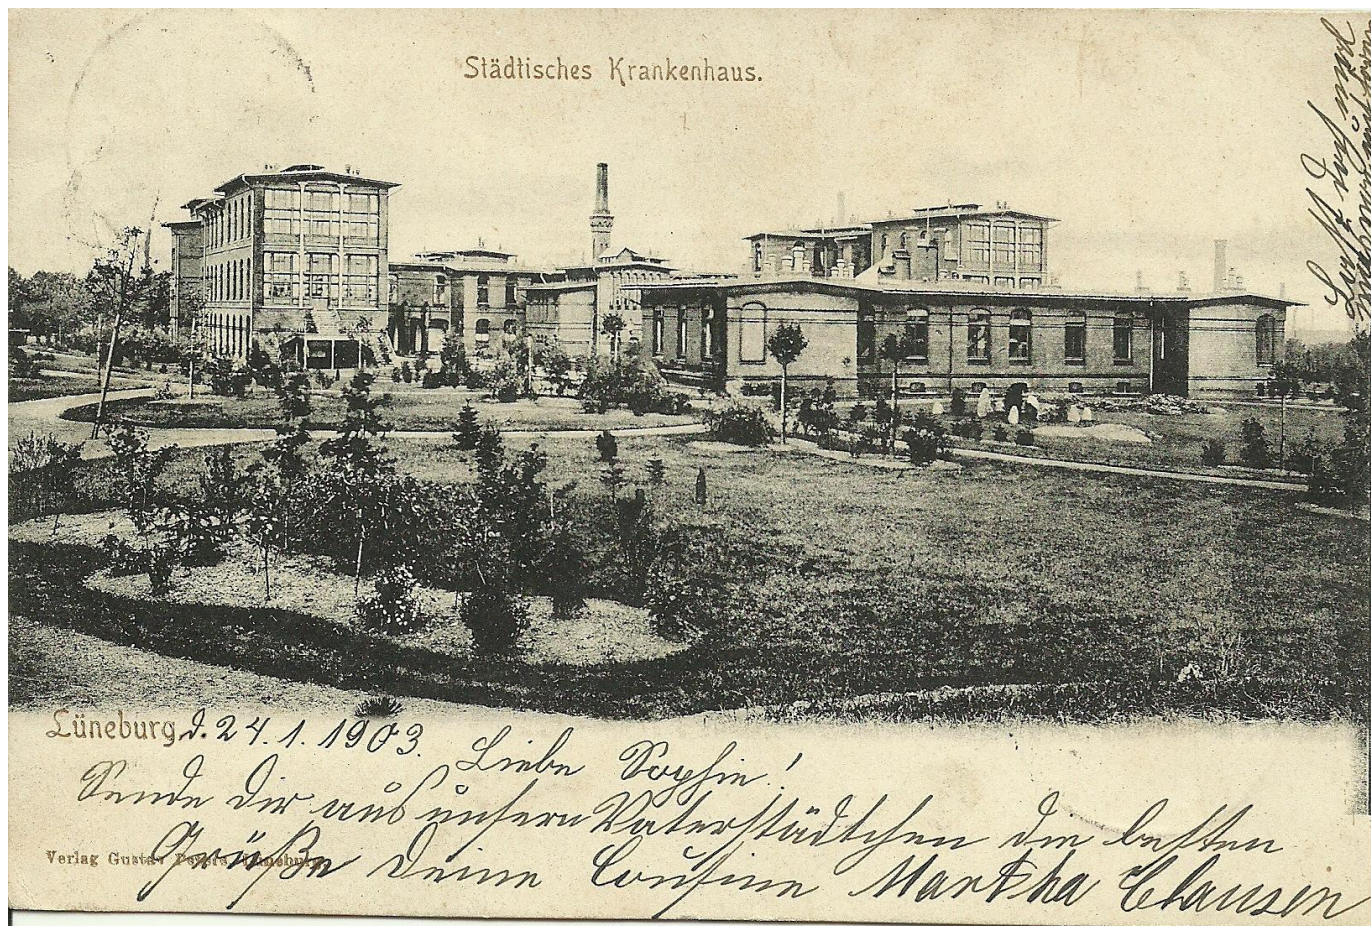 Städtisches Krankenhaus.
Lüneburg d. 24. 1. 1903. Liebe Sophie!
Sende dir aus unsern Vaterstädtchen die besten
Grüße Deine Cousine Martha Clausen
Verlag Gustav Peters, Lüneburg